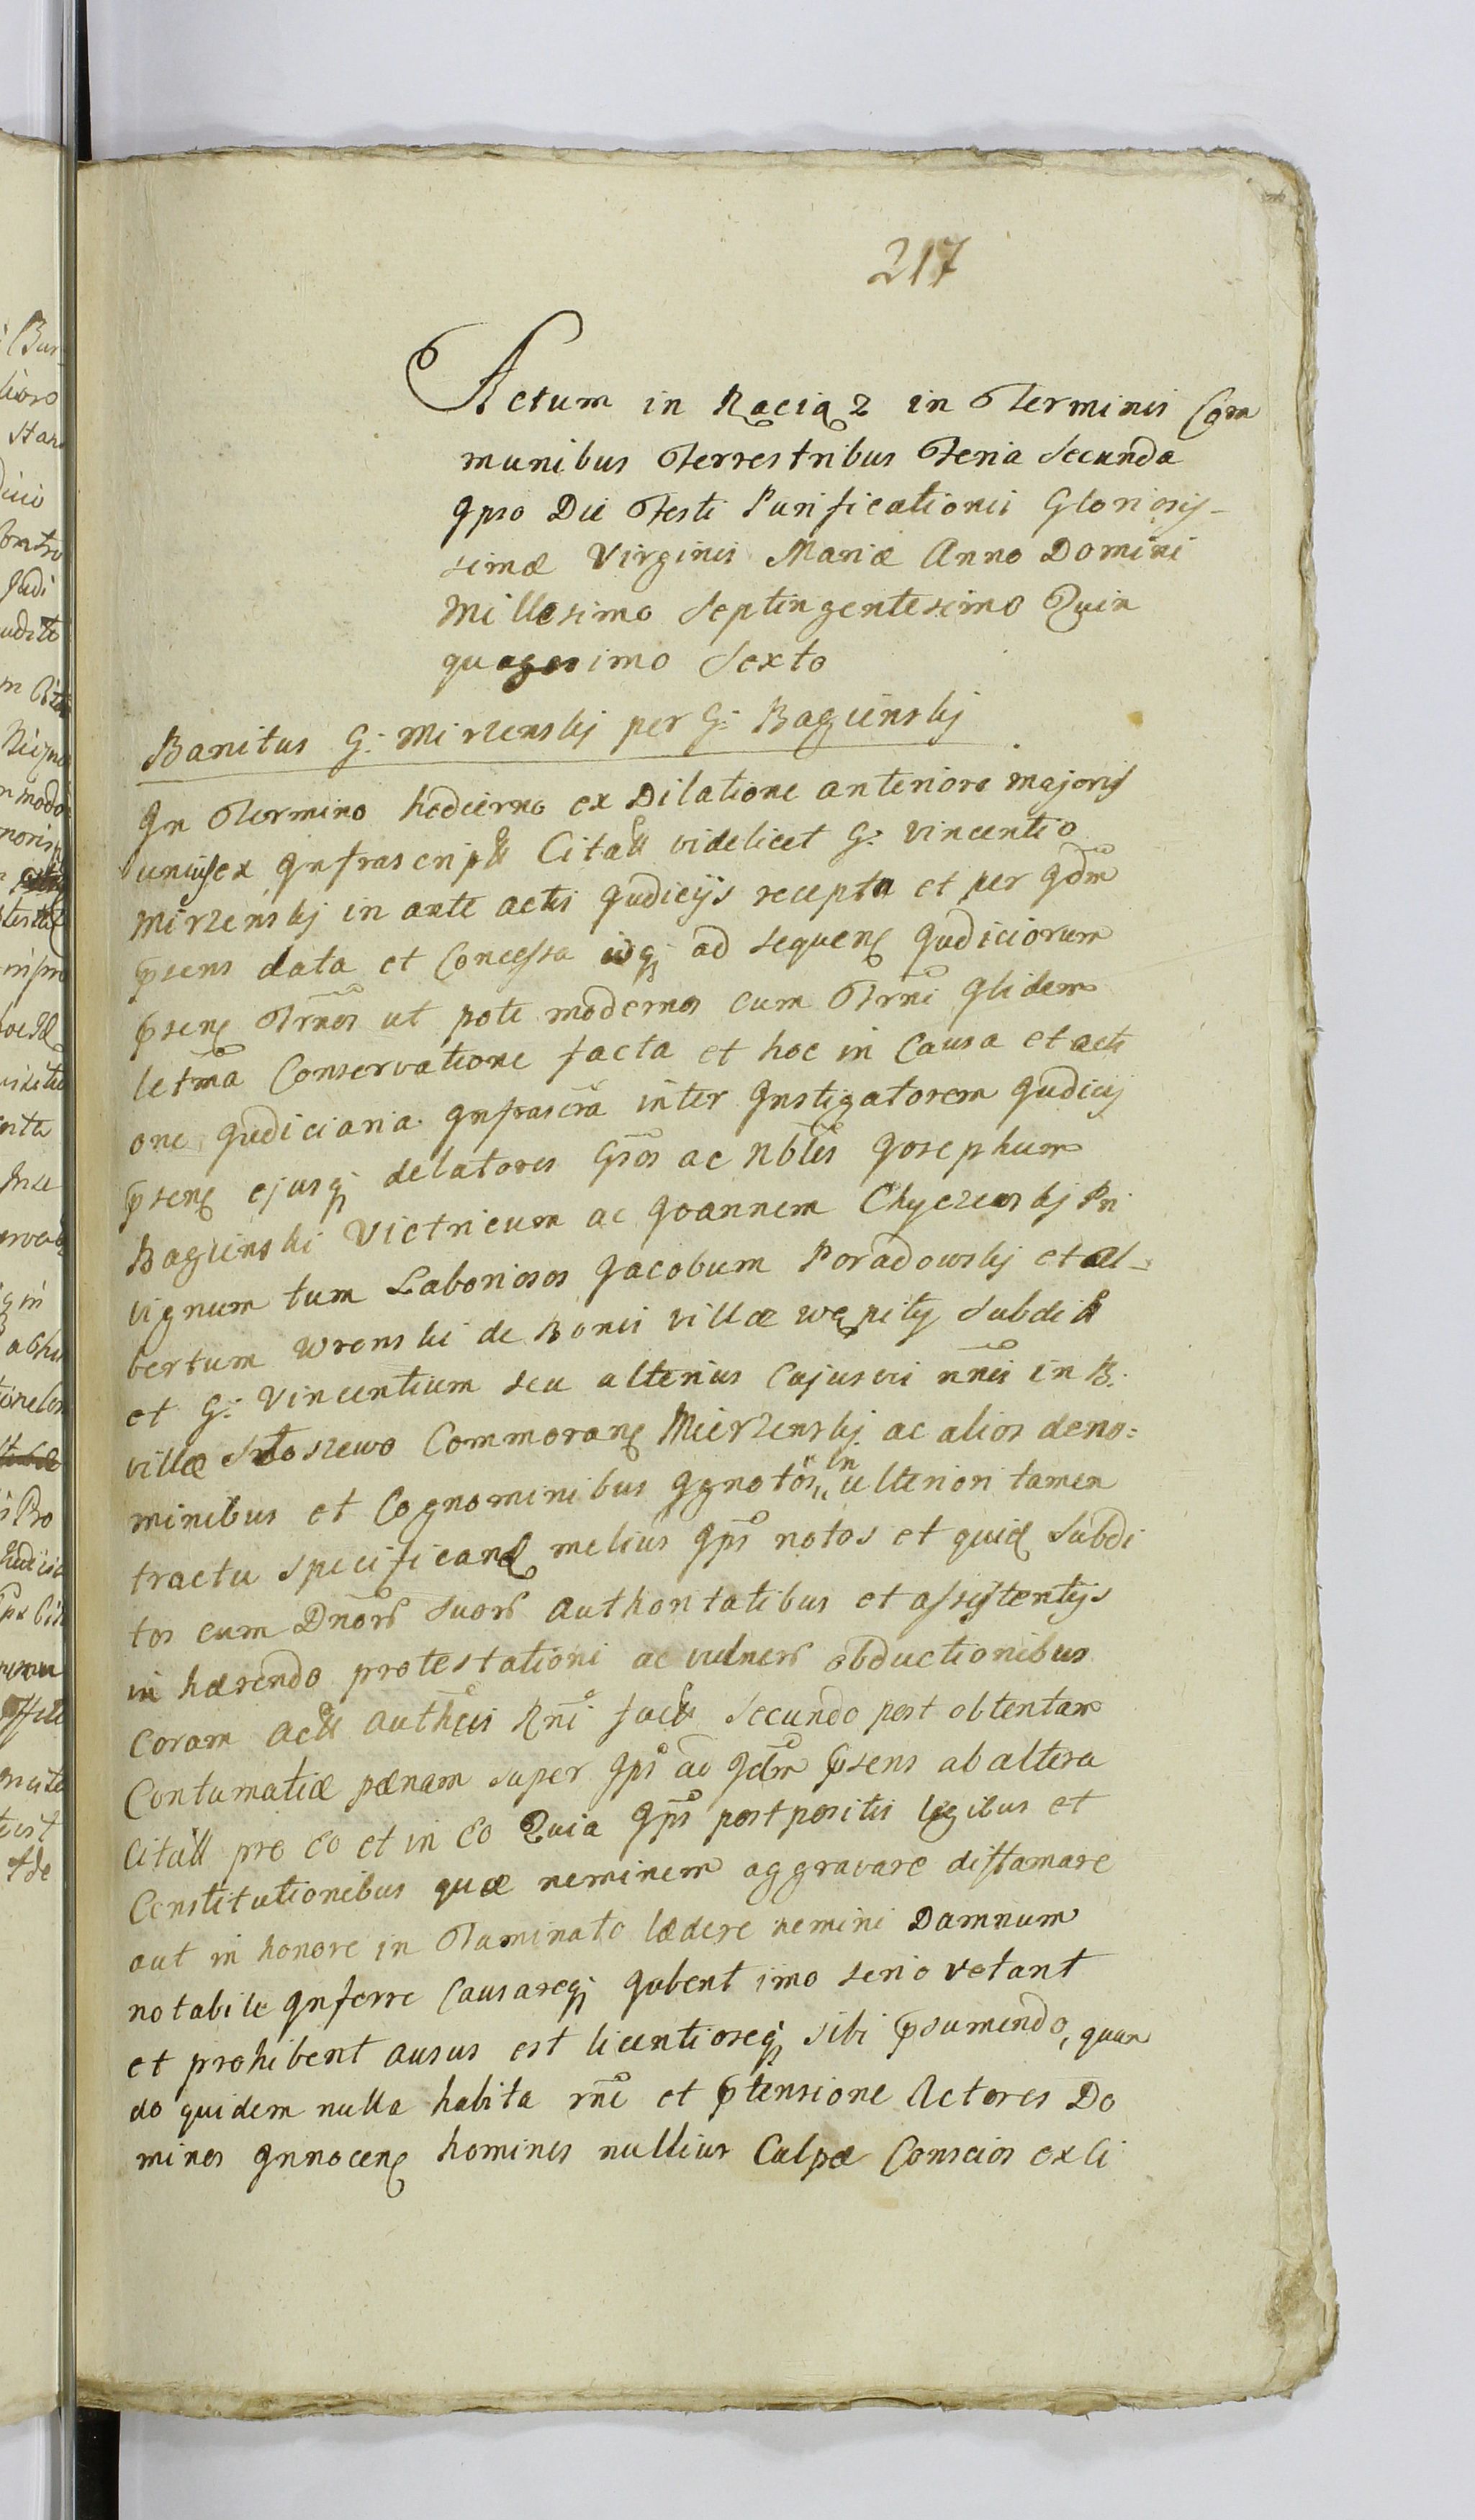 217
Actum in Raciąz in Terminis Com
munibus Terrestribus Feria Secunda
Ipso Die Festi Purificationis Gloriosis-
simæ Virginis Mariæ Anno Domini
Millesimo Septingentesimo Quin
quagesimo Sexto
Banitus G: Mirzenskj per G: Bagienskj
In Termino hodierno ex Dilatione anteriore majoris
unius ex Infrascript Citatt videlicet G: Vincentio
Mirzenskj in ante actis Judicijs recepta et per Idm
psens data et Concessa idq ad sequen Judiciorum
psen Trnos ut pote modernos cum Trni Ilidem
letma Conservatione facta et hoc in Causa et acti
one Judiciaria Infrascra inter Instigatorem Judicij
psen ejusq delatores Gsos ac Nbles Josephum
Bagienski Victricum ac Joannem Chyczewskj Pri
vignum tum Laboriosos Jacobum Poradowskj et Al-
bertum Wronski de Bonis villæ Wępiły Subditt
et G: Vincentium seu alterius Cujusvis nnis in B:
villæ Stoszewo Commoran Mierzenskj ac alios de no=
minibus et Cognominibus Ignotos in ulteriori tamen
tractu specificand melius Ips notos et quid Subdi
tos cum Dnors Suors Authoritatibus et assistentijs
in hærendo protestationi ac vulners obductionibus
Coram actt autheis Rni factt Secundo post obtentam
Contumatiæ pænam super Ips ac Idm psens ab altera
Citatt pro eo et in eo Quia Ips postpositis legibus et
Constitutionibus quæ neminem aggravare diffamare
aut in honore in Taminato lædere nemini Damnum
notabile Inferre Causareq Jubent imo serio vetant
et prohibent ausus est licentioseq sibi psumendo, quan
do quidem nulla habita rne et ptensione Actores Do
minos Innocen homines nullius Culpæ Conscios ex li